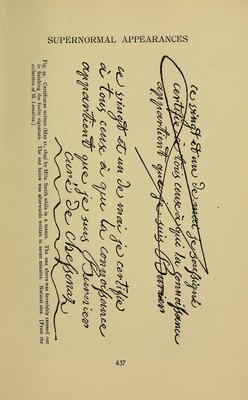 SUPERNORMAL APPEARANCES
ce vingt et un de mai je
certifie à tous ceux à qui la connoissance
appartient que je suis Burnier
ce vingt et un de mai je certifie
à tous ceux à que la connoissance
appartient que je suis Burnier
curé de Chessenaz
Fig. Certificate written (May 21, 1899) by Mlle. Smith while in a trance. The one above was feverishly crossed out
in finishing the faulty signature. The one below was afterwards written in seven minutes. Natural size. [From the
collection of M. Lemaître.]
437